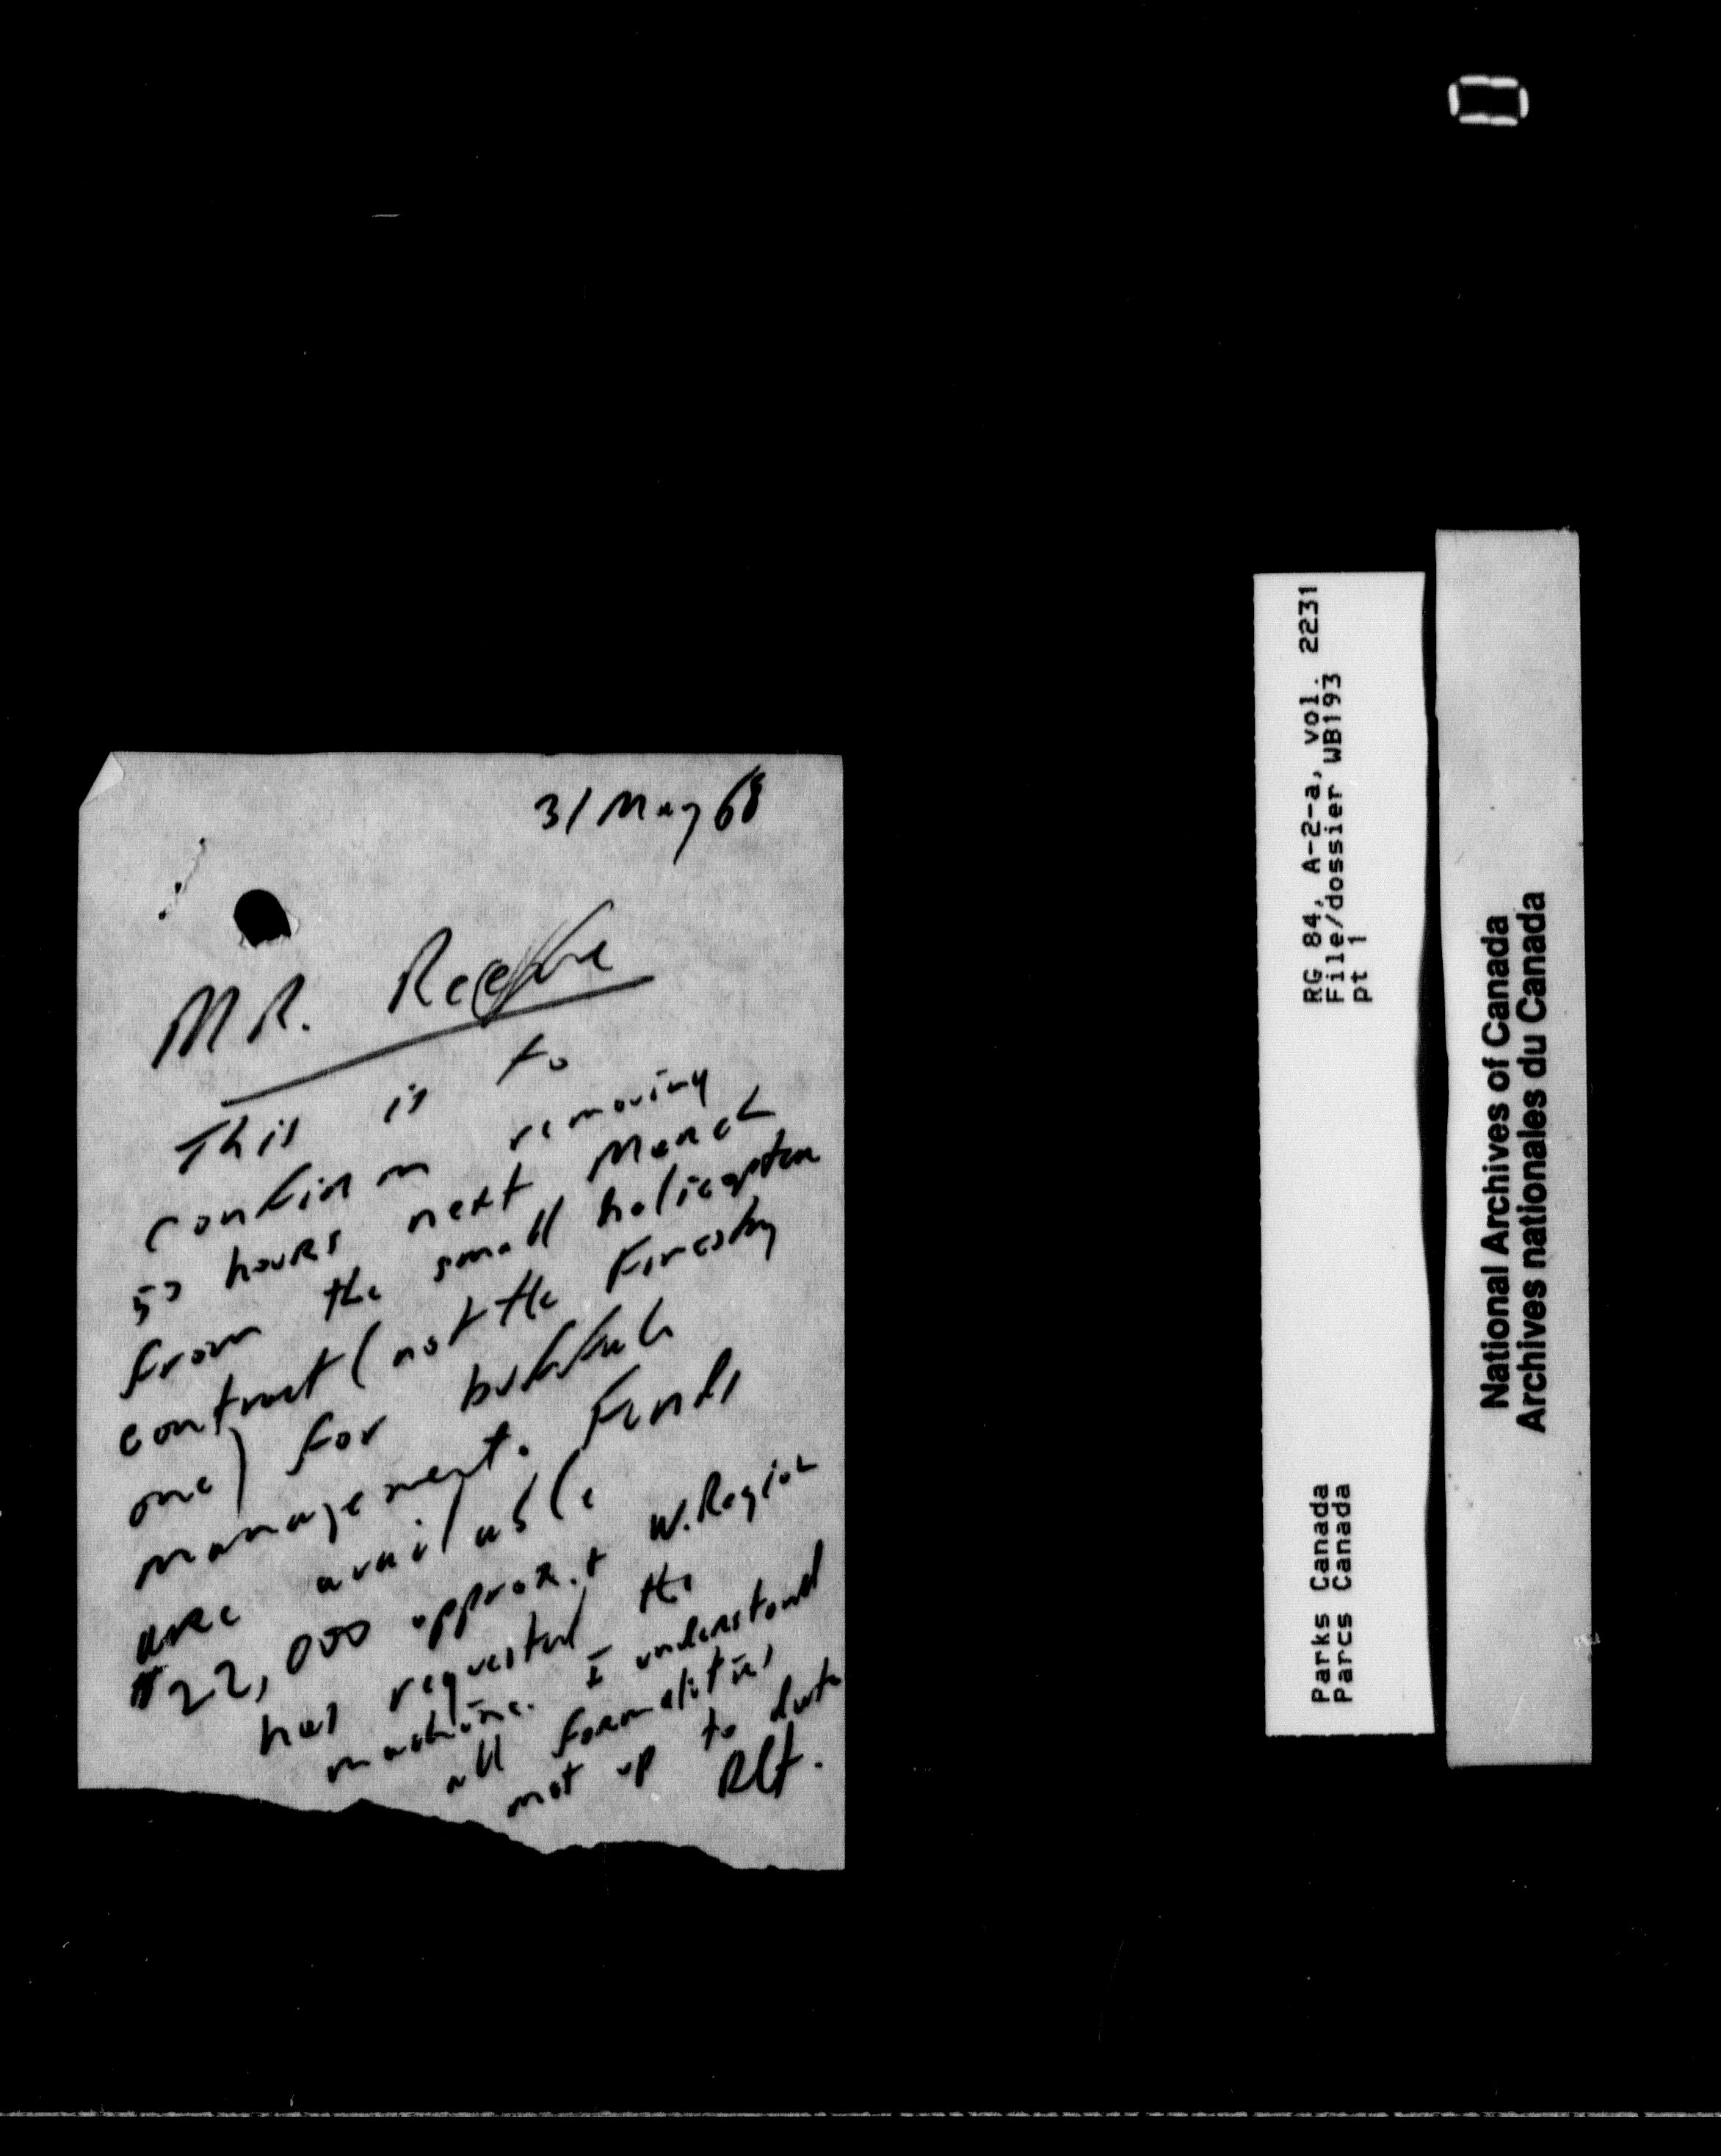 31 May 68
MR. Reeve
This is to
confirm removing
50 hours next March
from the small helicopter
contract (not the Forestry
one) for buffalo
management. Funds
are available
$22,000 approx. + W. Region
has requested the
machine. I understand
all formalities
met up to date
RG 84, A-2-a, vol. 2231
File/dossier WB193
pt 1
Parks Canada
Parcs Canada
National Archives of Canada
Archives nationales du Canada